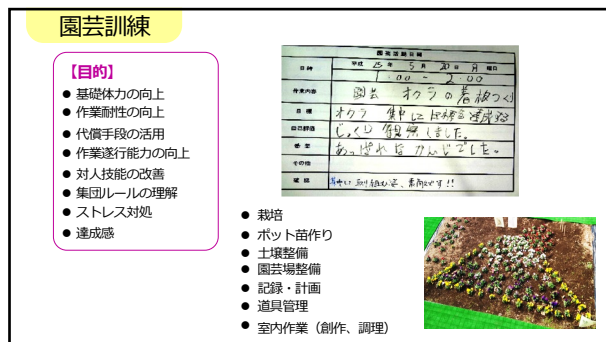 園芸訓練
【目的】
● 基礎体力の向上
● 作業耐性の向上
● 代償手段の活用
● 作業遂行能力の向上
● 対人技能の改善
● 集団ルールの理解
● ストレス対処
● 達成感
園芸訓練日誌
日時 平成 25 年 5 月 20 日 月 曜日
1:00 - 2:00
作業内容 園芸 オクラの看板つくり
目標 オクラ 集中して目標を達成する
自己評価 じっくり観察しました。
感想 あっぱれなかんじでした。
その他
確認 集中して取り組む姿、素敵です!!
● 栽培
● ポット苗作り
● 土壌整備
● 園芸場整備
● 記録・計画
● 道具管理
● 室内作業（創作、調理）